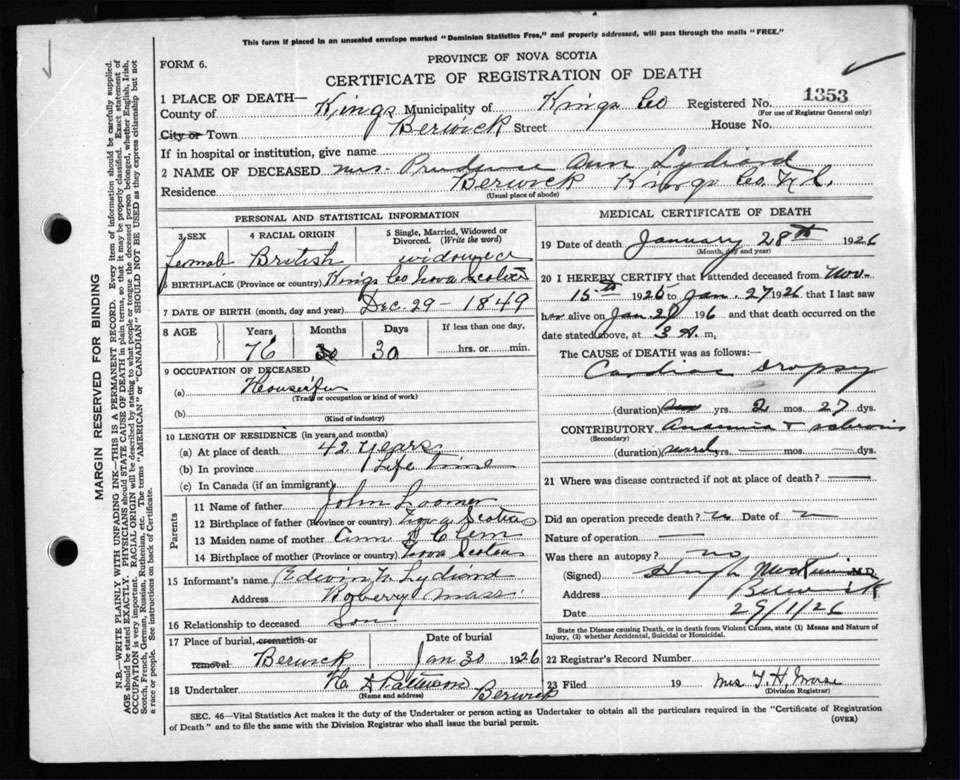 This form if placed in an unsealed envelope marked "Dominion Statistics Free," and property addressed, will pass through the mails "FREE."
FORM 6.
PROVINCE OF NOVA SCOTIA
CERTIFICATE OF REGISTRATION OF DEATH
1 PLACE OF DEATH—
County of Kings Municipality of Kings Co Registered No. 1353
(For use of Registrar General only)
City or Town Berwick Street House No.
If in hospital or institution, give name
2 NAME OF DECEASED Mrs. Prudence Ann Lydiard
Residence Berwick Kings Co. N.S.
(Usual place of abode)
PERSONAL AND STATISTICAL INFORMATION
3 SEX 4 RACIAL ORIGIN 5 Single, Married, Widowed or Divorced. (Write the word)
female British widowed
6 BIRTHPLACE (Province or country) Kings Co Nova Scotia
7 DATE OF BIRTH (month, day and year) Dec. 29 - 1849
8 AGE Years Months Days If less than one day,
76 30 30 hrs. or min.
9 OCCUPATION OF DECEASED
(a) Housewife
(Trade or occupation or kind of work)
(b)
(Kind of industry)
10 LENGTH OF RESIDENCE (in years and months)
(a) At place of death 42 years
(b) In province Life Time
(c) In Canada (if an immigrant)
Parents
11 Name of father John Loomer
12 Birthplace of father (Province or country) Nova Scotia
13 Maiden name of mother Ann
14 Birthplace of mother (Province or country) Nova Scotia
15 Informant's name Edwin Lydiard
Address Mass
16 Relationship to deceased Son
17 Place of burial, cremation or removal Berwick
Date of burial Jan 30 1926
18 Undertaker Berwick
(Name and address)
MEDICAL CERTIFICATE OF DEATH
19 Date of death January 28th 1926
(Month, day and year)
20 I HEREBY CERTIFY that I attended deceased from Nov-
15th 1925 to Jan. 27 1926 that I last saw
her alive on Jan 192 6 and that death occurred on the
date stated above, at 3 A. m,
The CAUSE of DEATH was as follows:
Cardiac Dropsy
(duration) yrs. 2 mos. 27 dys.
CONTRIBUTORY Anaemia +
(Secondary)
(duration) yrs. — mos. — dys.
21 Where was disease contracted if not at place of death?
Did an operation precede death? Date of
Nature of operation
Was there an autopsy? no
(Signed) Hugh M.D.
Address Berwick
Date 29/1/26
State the Disease causing Death, or in death from Violent Causes, state (1) Means and Nature of
Injury, (2) whether Accidental, Suicidal or Homicidal.
22 Registrar's Record Number
23 Filed 19 Mrs
(Division Registrar)
SEC. 46—Vital Statistics Act makes it the duty of the Undertaker or person acting as Undertaker to obtain all the particulars required in the "Certificate of Registration
of Death" and to file the same with the Division Registrar who shall issue the burial permit. (OVER)
MARGIN RESERVED FOR BINDING
N.B.—WRITE PLAINLY WITH UNFADING INK—THIS IS A PERMANENT RECORD. Every item of information should be carefully supplied.
AGE should be stated EXACTLY. PHYSICIANS should STATE CAUSE OF DEATH in plain terms, so that it may be properly classified. Exact statement of
OCCUPATION is very important. RACIAL ORIGIN will be described by stating to what people or tongue the deceased person belonged, whether English, Irish,
Scotch, French, German, Russian, Ruthenian, etc. The terms "AMERICAN" or "CANADIAN" SHOULD NOT BE USED as they express citizenship but not
a race or people. See instructions on back of Certificate.